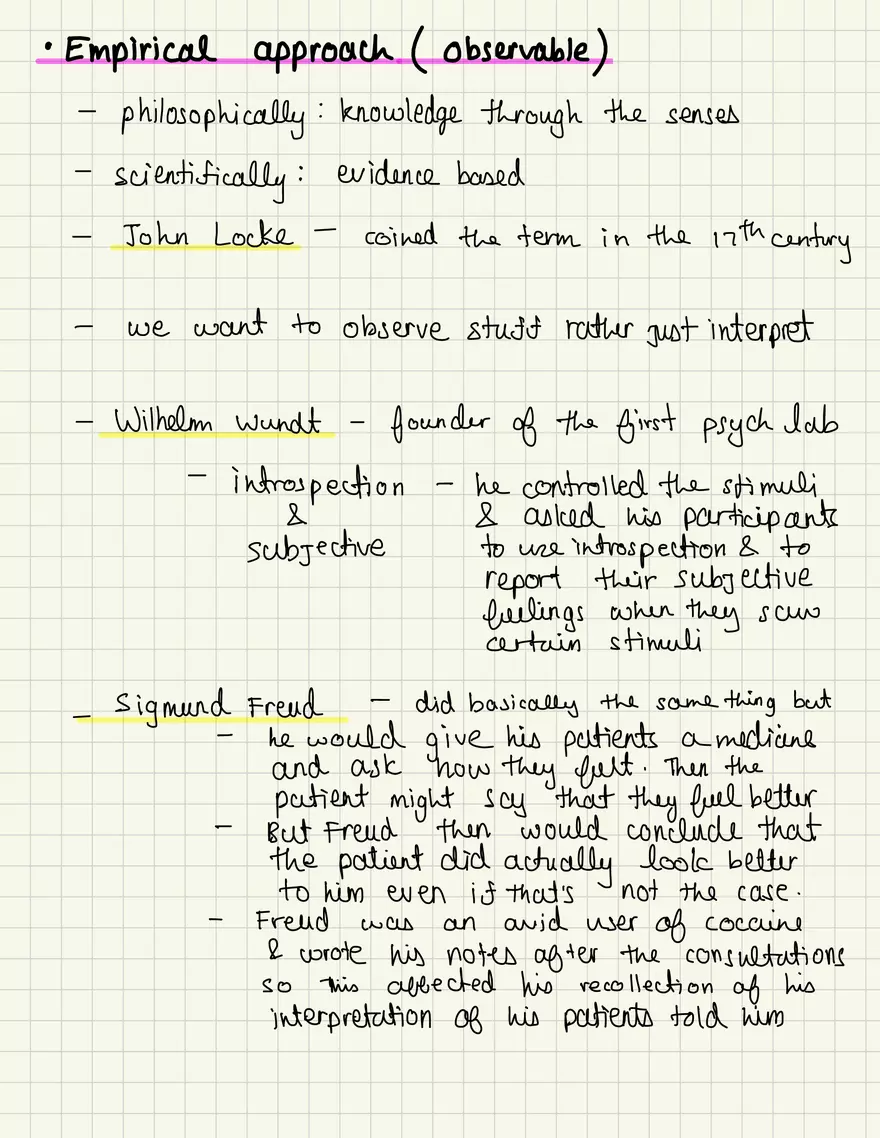 • Empirical approach (observable)
– philosophically: knowledge through the senses
– scientifically: evidence based
– John Locke – coined the term in the 17th century
– we want to observe stuff rather just interpret
– Wilhelm Wundt – founder of the first psych lab
– introspection – he controlled the stimuli
& & asked his participants
subjective to use introspection & to
report their subjective
feelings when they saw
certain stimuli
– Sigmund Freud – did basically the same thing but
– he would give his patients a medicine
and ask how they felt. Then the
patient might say that they feel better
– But Freud then would conclude that
the patient did actually look better
to him even if that's not the case.
– Freud was an avid user of cocaine
& wrote his notes after the consultations
so this affected his recollection of his
interpretation of his patients told him